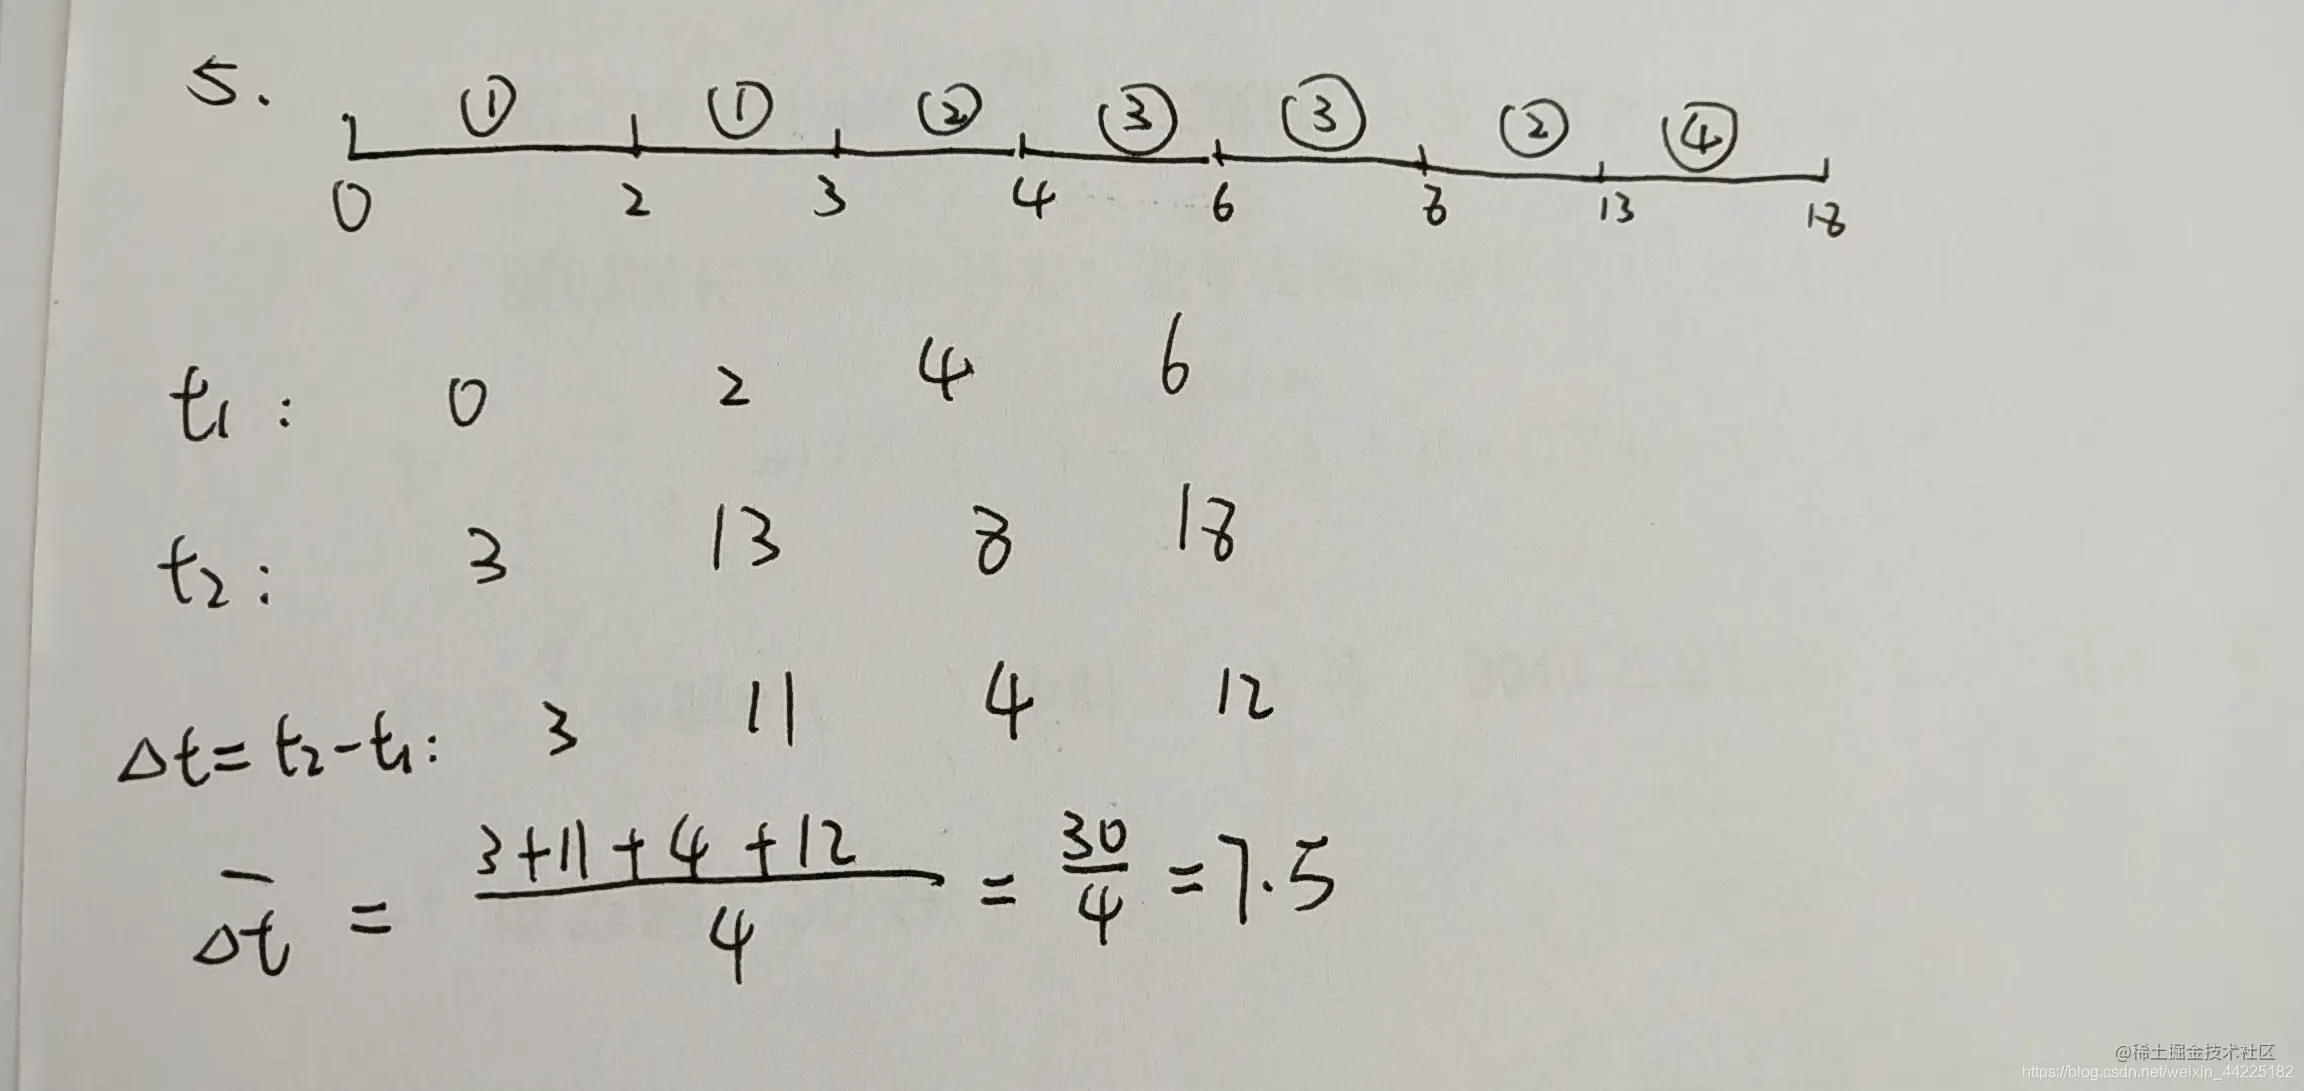 5.
① ① ② ③ ③ ② ④
0 2 3 4 6 8 13 18
t₁: 0 2 4 6
t₂: 3 13 8 18
Δt=t₂-t₁: 3 11 4 12
Δt̅ = (3+11+4+12)/4 = 30/4 =7.5
@稀土掘金技术社区
https://blog.csdn.net/weixin_44225182